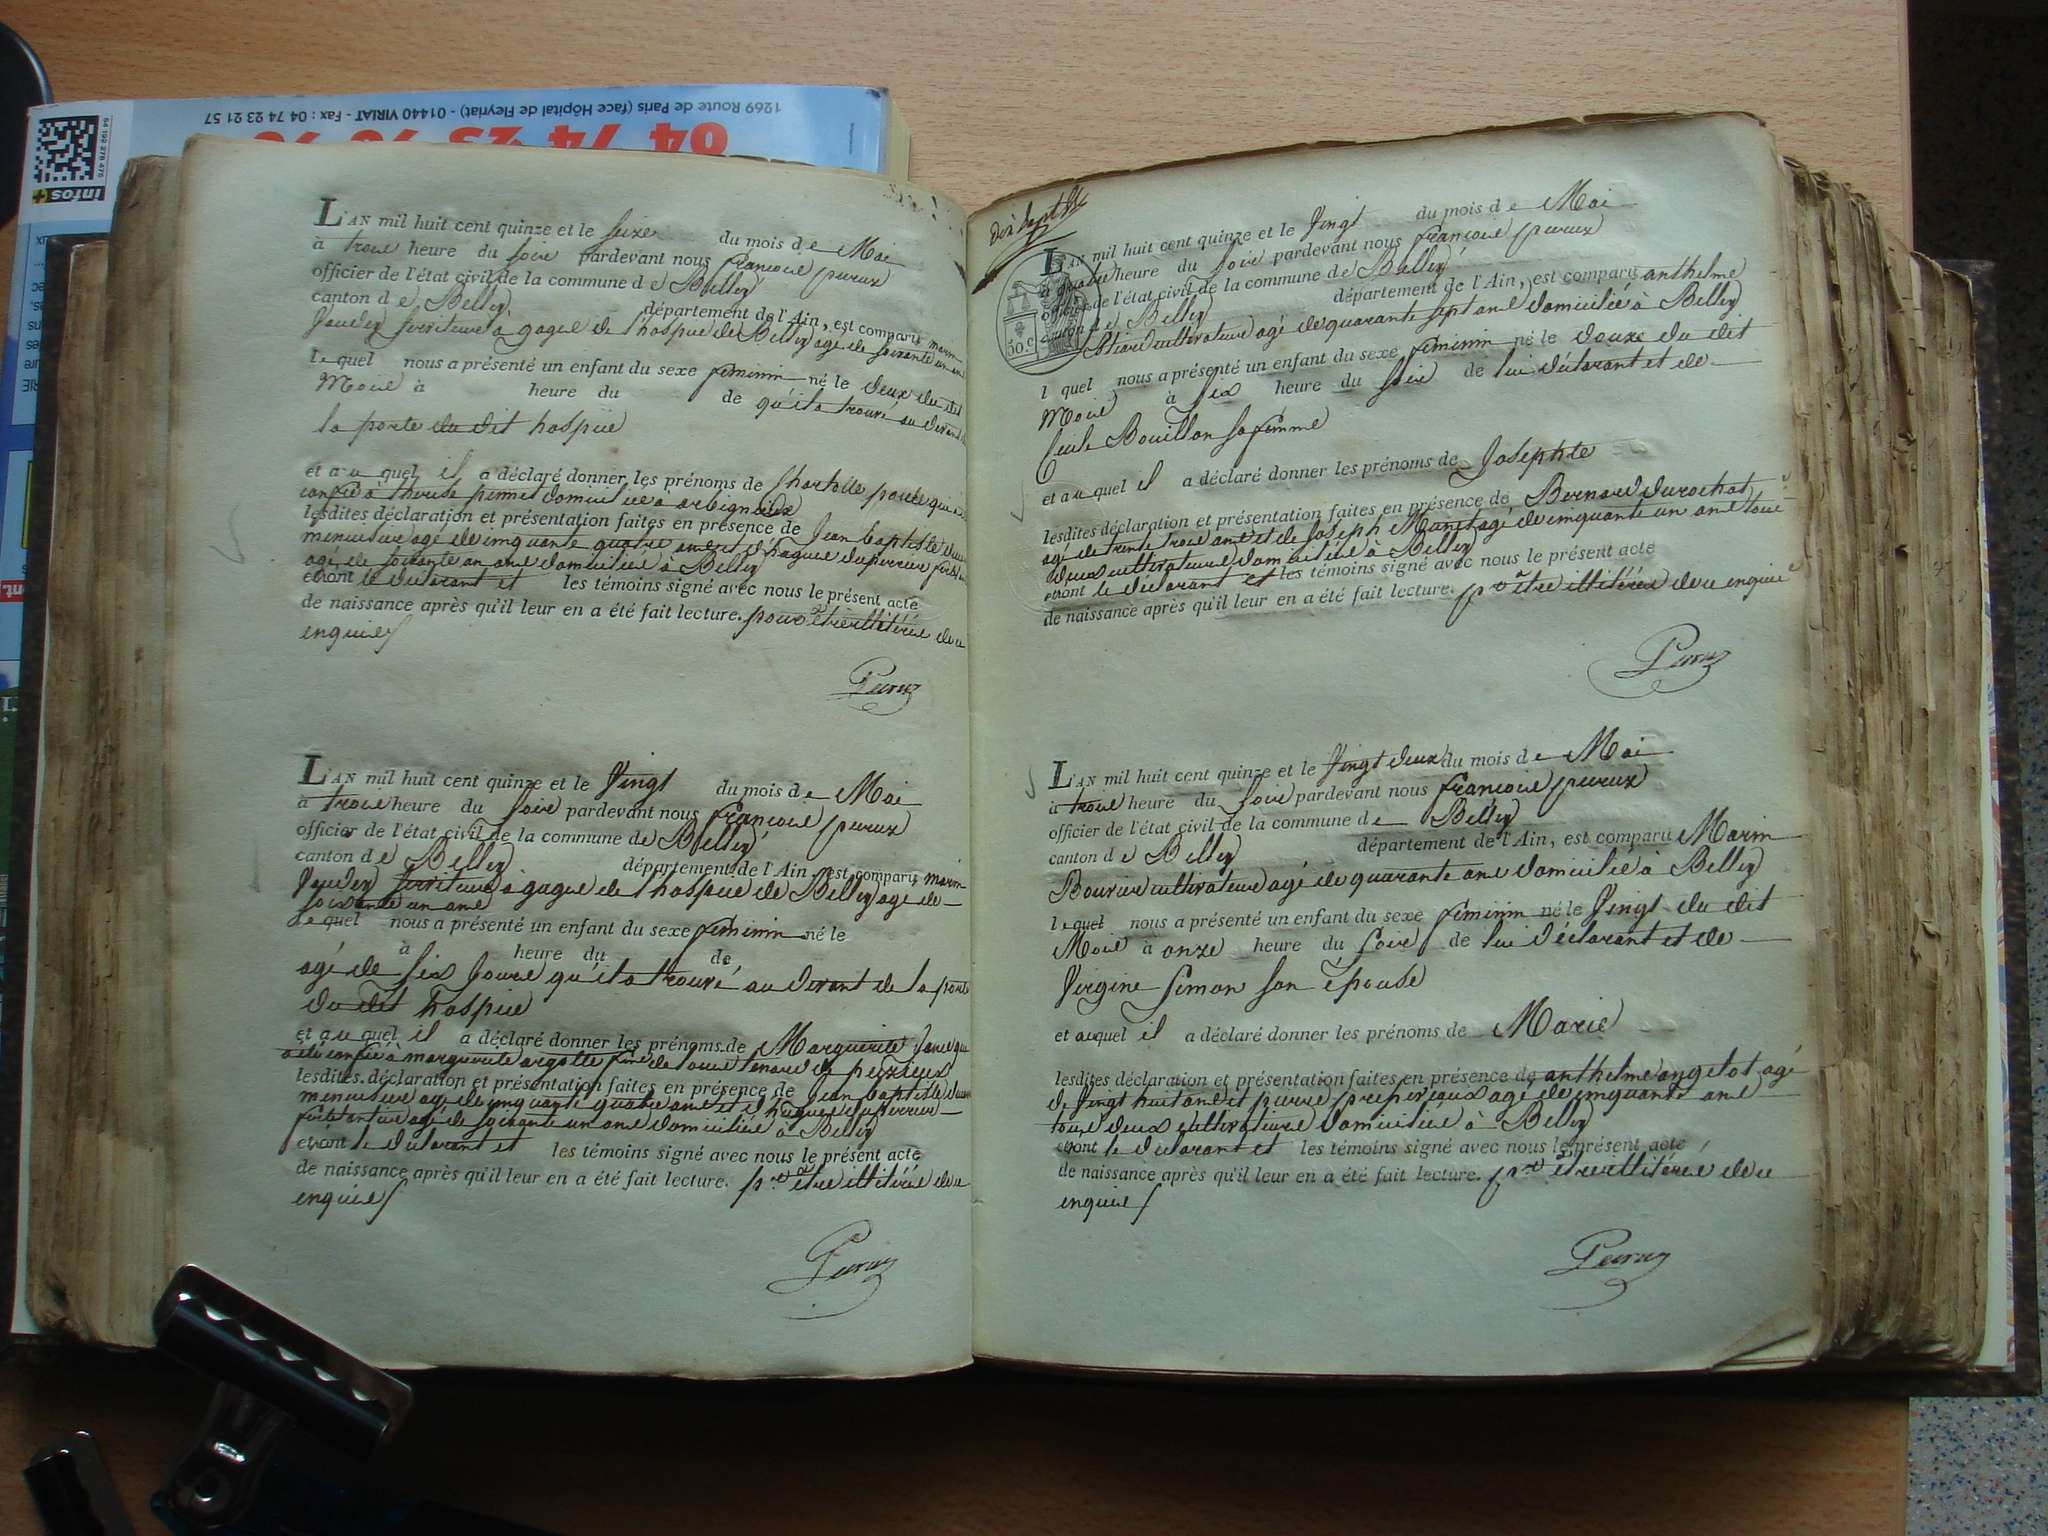 1269 Route de Paris (face Hôpital de Fleyriat) - 01440 VIRIAT - Fax : 04 74 23 21 57
04 74 23
infos+
L'AN mil huit cent quinze et le seize du mois de Mai
à trois heure du soir pardevant nous françois peireux
officier de l'état civil de la commune de Belley
canton de Belley département de l'Ain, est comparu marin
serviteur à gage de l'hospice de Belley agé de soixante un ans
lequel nous a présenté un enfant du sexe féminin né le deux du dit
Mois à heure du de qu'il a trouvé au devant de
la porte du dit hospice
et auquel il a déclaré donner les prénoms de Charlotte
confié à domiciliée à arbignieux
lesdites déclaration et présentation faites en présence de Jean baptiste
menuisier agé de cinquante quatre ans et d'hugues duperrier
agé de soixante un ans domiciliés à Belley
et ont le déclarant et les témoins signé avec nous le présent acte
de naissance après qu'il leur en a été fait lecture. pour être illitérés de ce
enquis
L'AN mil huit cent quinze et le Vingt du mois de Mai
à trois heure du soir pardevant nous françois peireux
officier de l'état civil de la commune de Belley
canton de Belley département de l'Ain, est comparu marin
serviteur à gage de l'hospice de Belley agé de
soixante un ans
lequel nous a présenté un enfant du sexe féminin né le
à heure du de
agé de six jours qu'il a trouvé au devant de la porte
du dit hospice
et auquel il a déclaré donner les prénoms de Marguerite
a été confié à marguerite argotte de peyzieux
lesdites déclaration et présentation faites en présence de Jean baptiste
menuisier agé de cinquante quatre ans et d'hugues duperrier
agé de soixante un ans domiciliés à Belley
et ont le déclarant et les témoins signé avec nous le présent acte
de naissance après qu'il leur en a été fait lecture. pr être illitérés de ce
enquis
Dix Sept
50.c
L'AN mil huit cent quinze et le Vingt du mois de Mai
à quatre heure du soir pardevant nous françois peireux
officier de l'état civil de la commune de Belley
canton de Belley département de l'Ain, est comparu anthelme
cultivateur agé de quarante sept ans domicilié à Belley
l quel nous a présenté un enfant du sexe féminin né le douze du dit
Mois à six heure du soir de lui déclarant et de
Cécile Bouillon sa femme
et auquel il a déclaré donner les prénoms de Josephte
lesdites déclaration et présentation faites en présence de Bernard durochat
agé de trente trois ans et de Joseph agé de cinquante un ans tous
deux cultivateurs domiciliés à Belley
et ont le déclarant et les témoins signé avec nous le présent acte
de naissance après qu'il leur en a été fait lecture. pr être illitérés de ce enquis
L'AN mil huit cent quinze et le Vingt deux du mois de Mai
à trois heure du soir pardevant nous françois peireux
officier de l'état civil de la commune de Belley
canton de Belley département de l'Ain, est comparu Marin
Bourier cultivateur agé de quarante ans domicilié à Belley
lequel nous a présenté un enfant du sexe féminin né le Vingt du dit
Mois à onze heure du soir de lui déclarant et de
Virgine Simon son épouse
et auquel il a déclaré donner les prénoms de Marie
lesdites déclaration et présentation faites en présence de anthelme angelot agé
de Vingt huit ans et pierre agé de cinquante ans
tous deux cultivateurs domiciliés à Belley
et ont le déclarant et les témoins signé avec nous le présent acte
de naissance après qu'il leur en a été fait lecture. pr être illitérés de ce
enquis